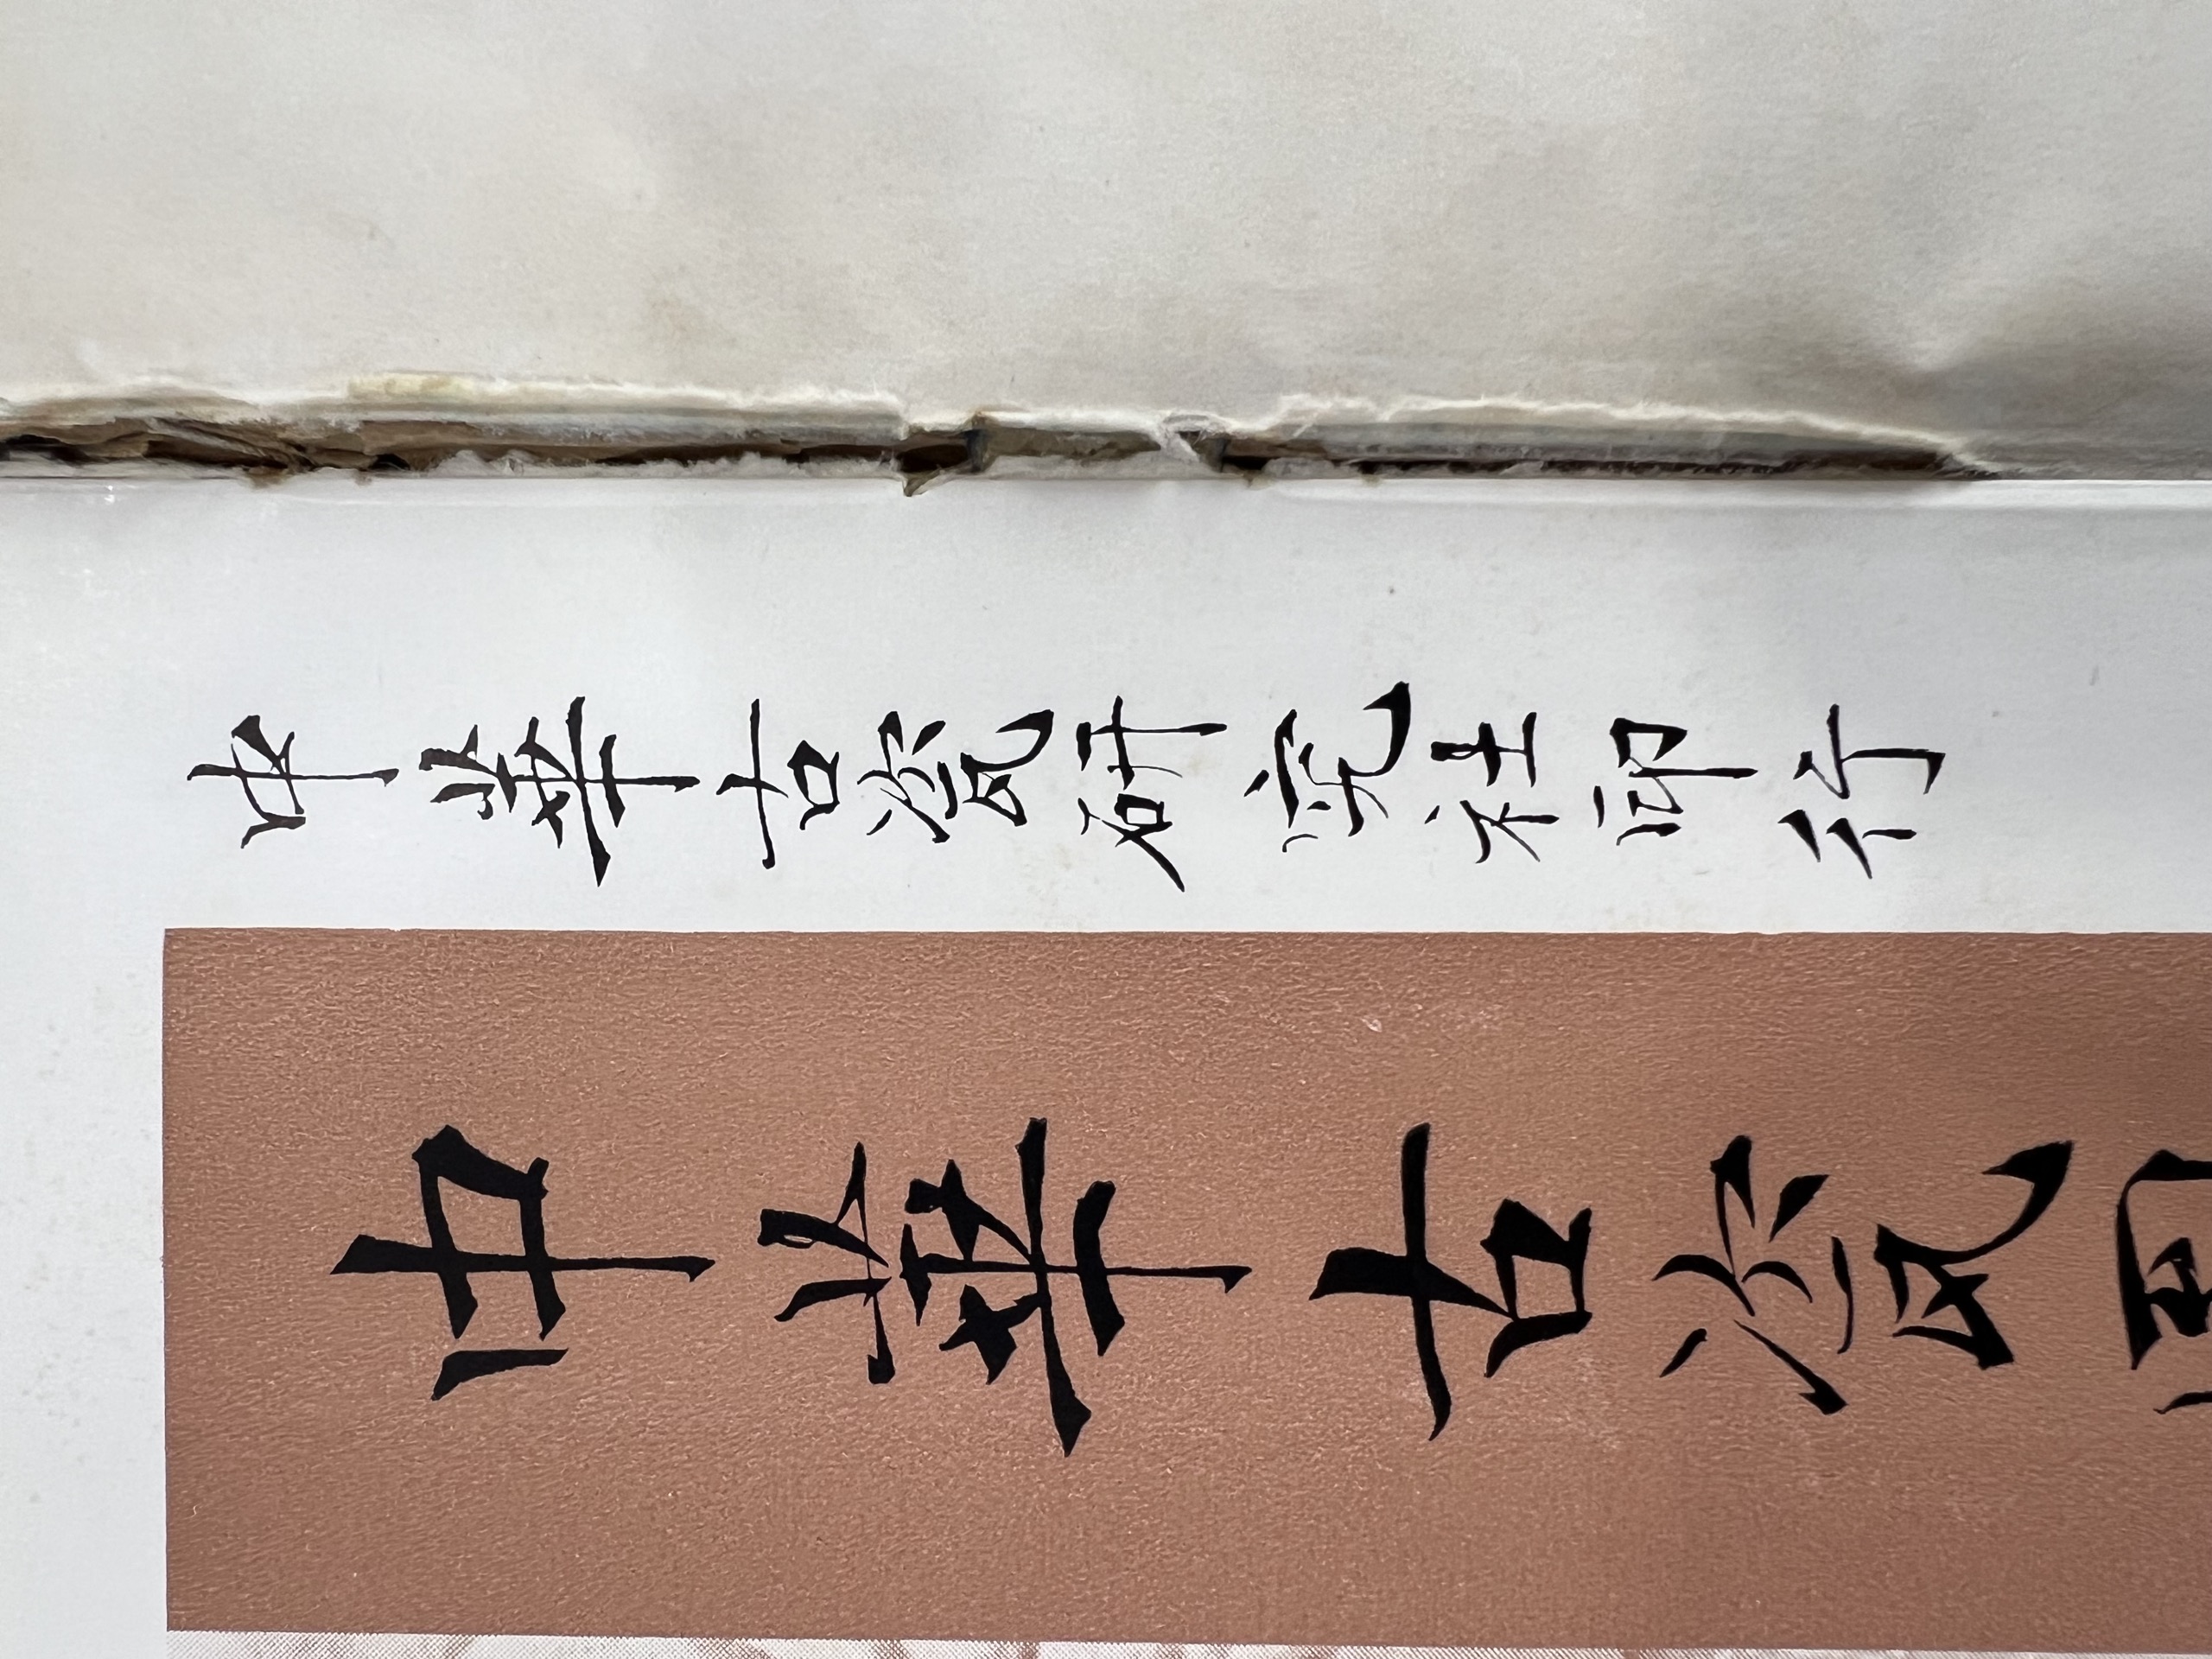 中華古瓷研究社印行
中華古瓷